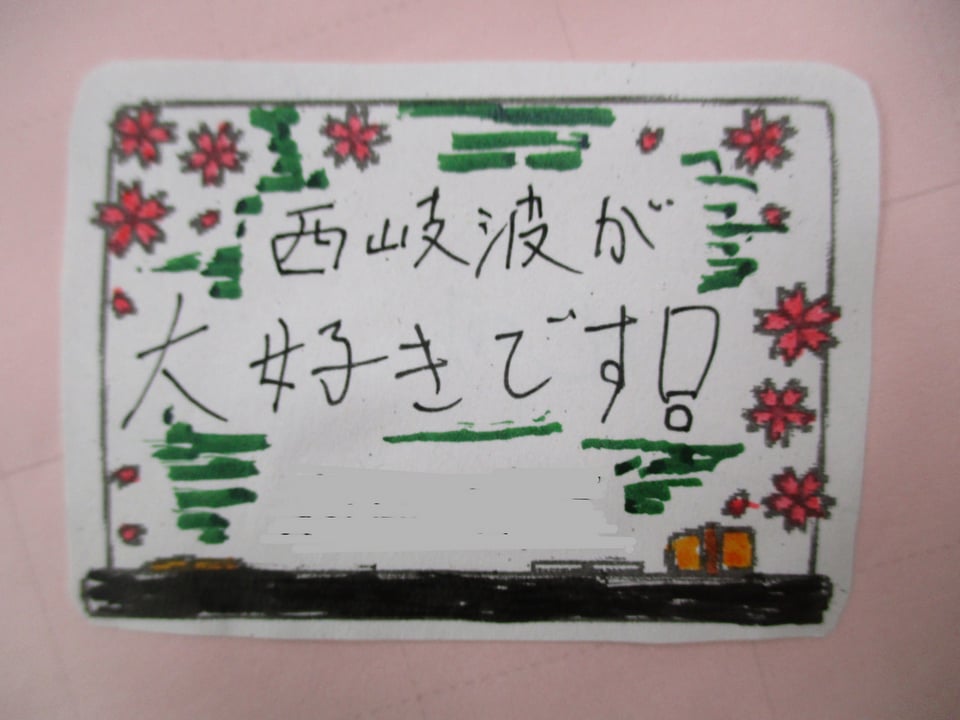 西岐波が
大好きです!